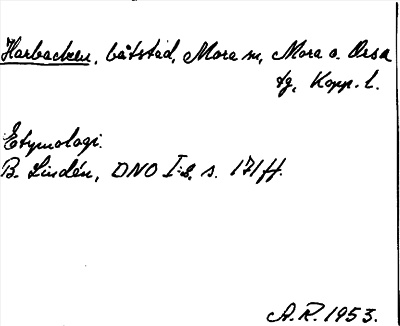 Harbacken, båtstad, Mora sn, Mora o. Orsa
tg, Kopp. l.
Etymologi.
B. Lindén, DNO I:2, s. 171 ff.
A.R. 1953.